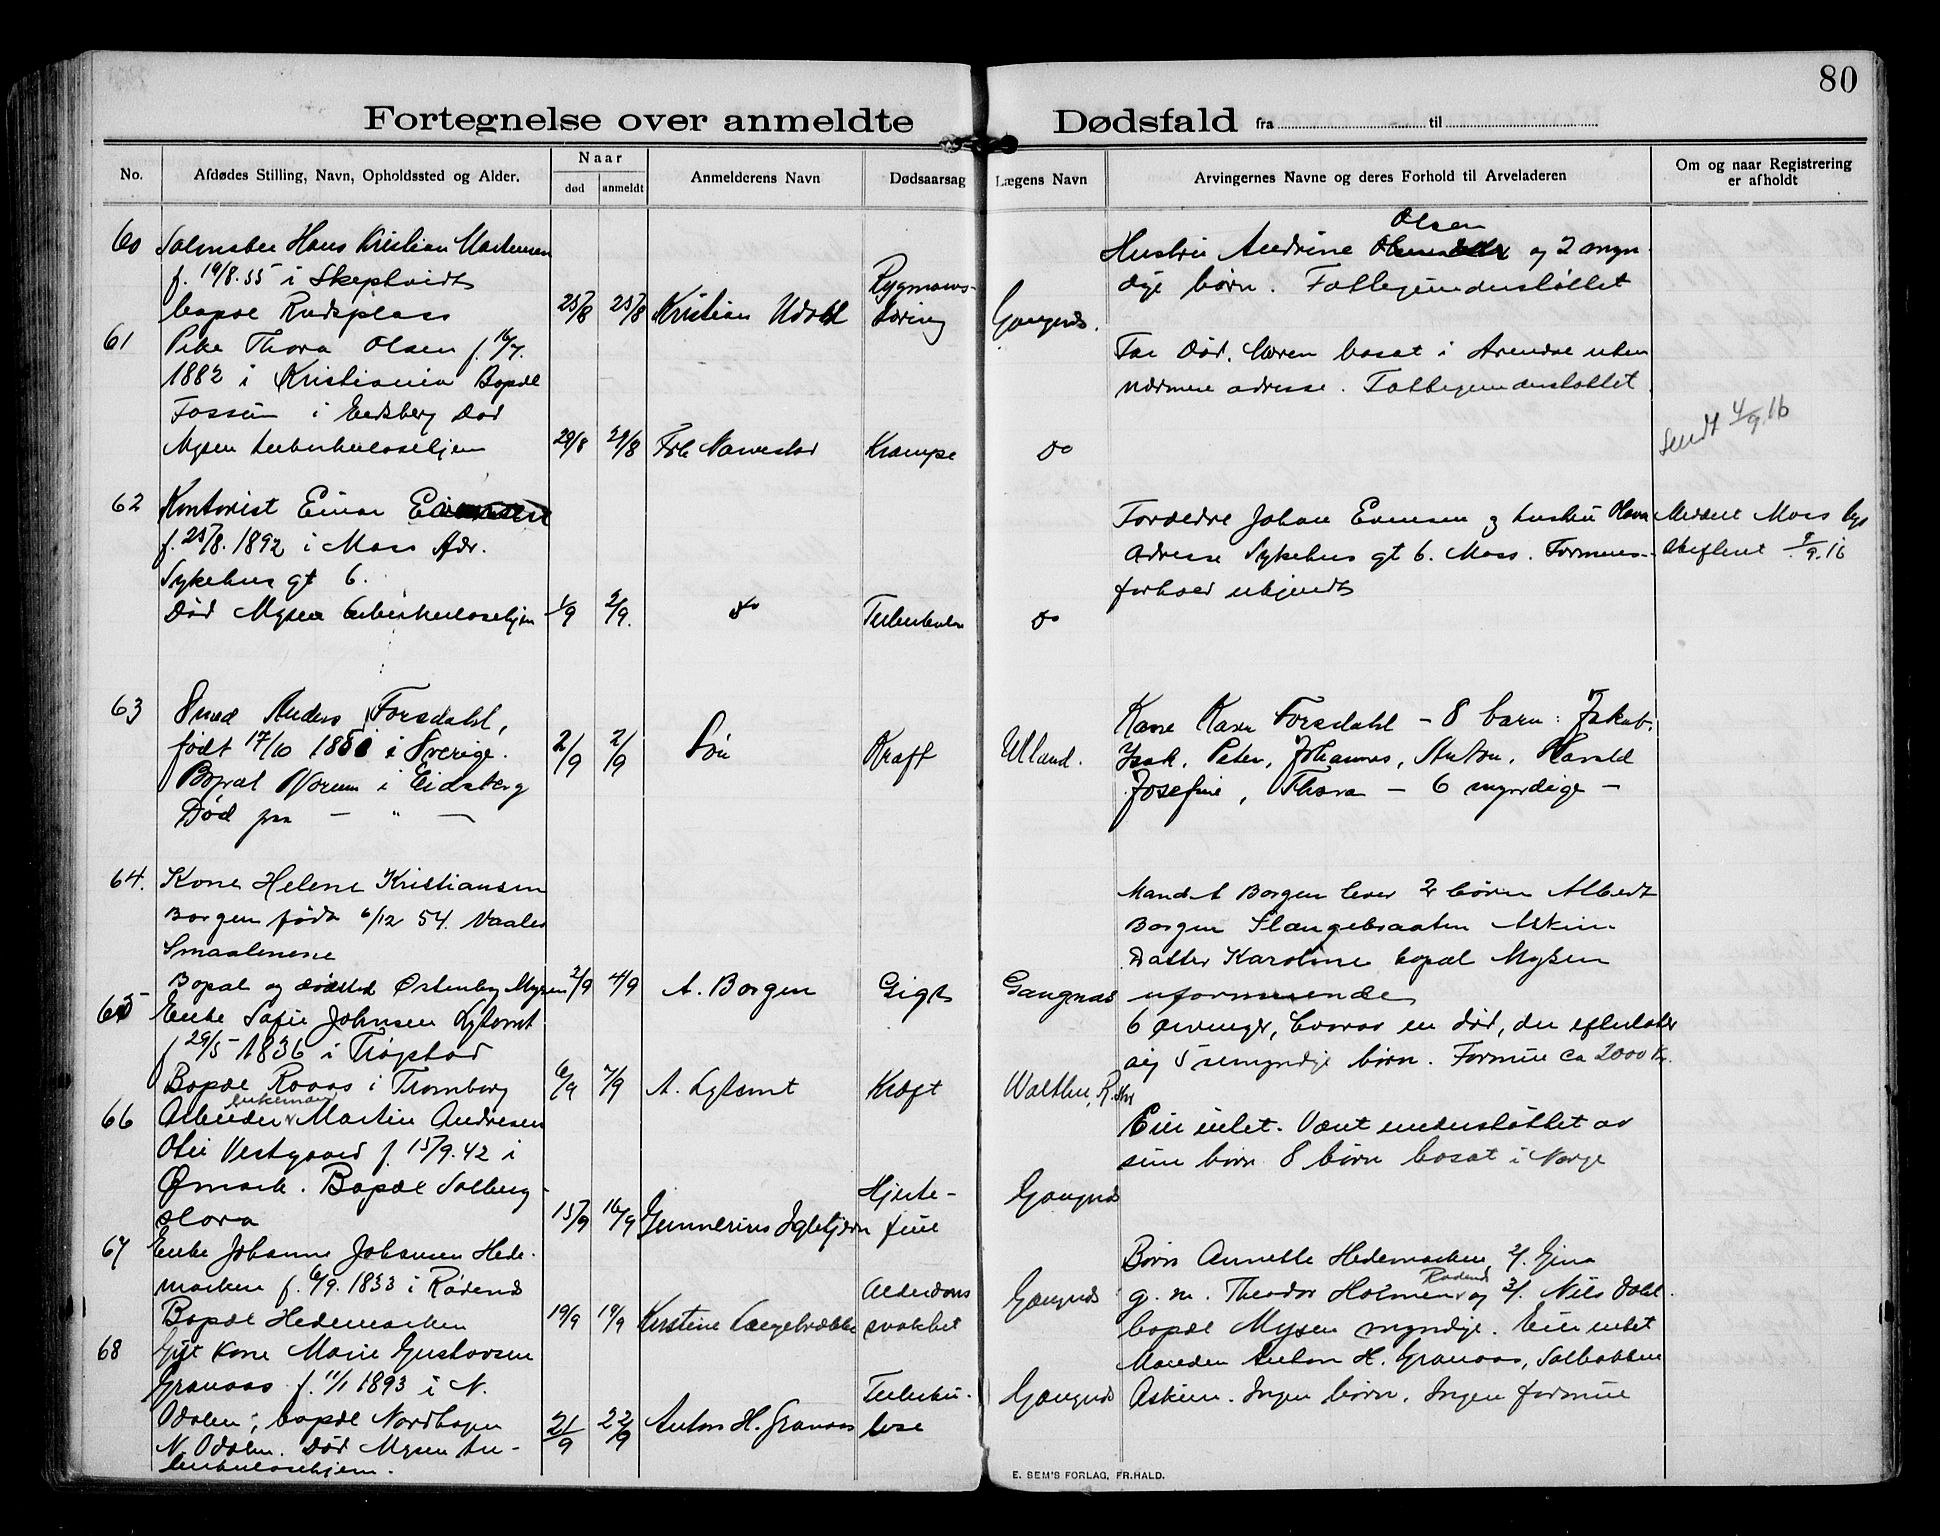 80
Fortegnelse over anmeldte Dødsfald fra til
No.
Afdødes Stilling, Navn, Opholdssted og Alder.
Naar
død
anmeldt
Anmelderens Navn
Dødsaarsag
Lægens Navn
Arvingernes Navne og deres Forhold til Arveladeren
Om og naar Registrering
er afholdt
60
Hans Kristian Martensen
f. 19/8.55 i Skeptvedt
bopæl Rudsplass
25/8
25/8
Kristian
Rygmarvs-
tæring
Gangnæs.
Olsen
Hustru Andrine og 2 myn
dige børn. Fattigunderstøttet
61
Pike Thora Olsen f. 16/7.
1882 i Kristiania Bopæl
Fossum i Eidsberg Død
Mysen tuberkulosehjem
29/8
29/8
Frk Narvestad
Krampe
do
Far død. Moren bosat i Arendal uten
nærmere adresse. Fattigunderstøttet.
Sendt 4/9.16
62
Kontorist Einar Evensen
f. 25/8. 1892 i Moss Adr.
Sykehus gt 6.
Død Mysen tuberkulosehjem
1/9
2/9.
do
Tuberkulose
do
Forældre Johan Evensen og hustru
Adresse Sykehus gt 6. Moss. Formues-
forhold ukjendt
Meddelt Moss
9/9.16
63
Smed Anders Forsdahl,
født 17/10 1850 i Sverige.
Bopæl Norum i Eidsberg
Død paa — " —
2/9
2/9
Søn
Kræft
Ulland.
Kone Karen Forsdahl — 8 barn: Jakob,
Isak, Peter, Johannes, Anton, Harald
Josefine, Thora — 6 myndige —
64.
Kone Helene Kristiansen
Borgen født 6/12 54. Vaaler
Smaalenene
Bopæl og dødsted Østenby Mysen
2/9
4/9
A. Borgen
Gigt
Gangnæs
Mand A Borgen lever 2 børn Albert
Borgen Slangebraaten Askim
Datter Karoline bopæl Mysen
uformuende
65
Enke Sofie Johnsen Lytomt
f 29/5 1836 i Trøgstad
Bopæl Raaas i Trømborg
6/9
7/9
A. Lytomt
Kræft
6 arvinger, hvorav en død, der efterlater
sig 5 umyndige børn. Formue ca 2000 Kr.
66
enkemand
Arbeider Martin Andresen
Vestgaard f. 15/9.42 i
Ømark. Bopæl Solberg
Hova
15/9
16/9
Gunnerius Igletjern
Hjerte-
feil
Gangnæs
Eier intet. Vært understøttet av
sine børn 8 børn bosat i Norge
67
Enke Johanne Johansen Hede-
marken f. 6/9. 1833 i Rødenes
Bopæl Hedemarken
19/9
19/9
Kirstine Langebrække
Alderdoms
svakhet
Gangnæs
Børn Annette Hedemarken, 2/. Gina
Rødenes
g. m. Theodor Holmen og 3/. Nils Dahl.
bopæl Mysen myndige. Eier intet
68
Gift Kone Marie Gustavsen
Granaas f. 11/1 1893 i N.
Odalen; bopæl Nordhagen
N. Odalen. Død Mysen tu-
berkulosehjem.
21/9
22/9
Anton H. Granaas
Tuberku-
lose
Gangnæs
Manden Anton H. Granaas, Solbakken
Askim. Ingen børn. Ingen formue
E. SEM'S FORLAG, FR.HALD.